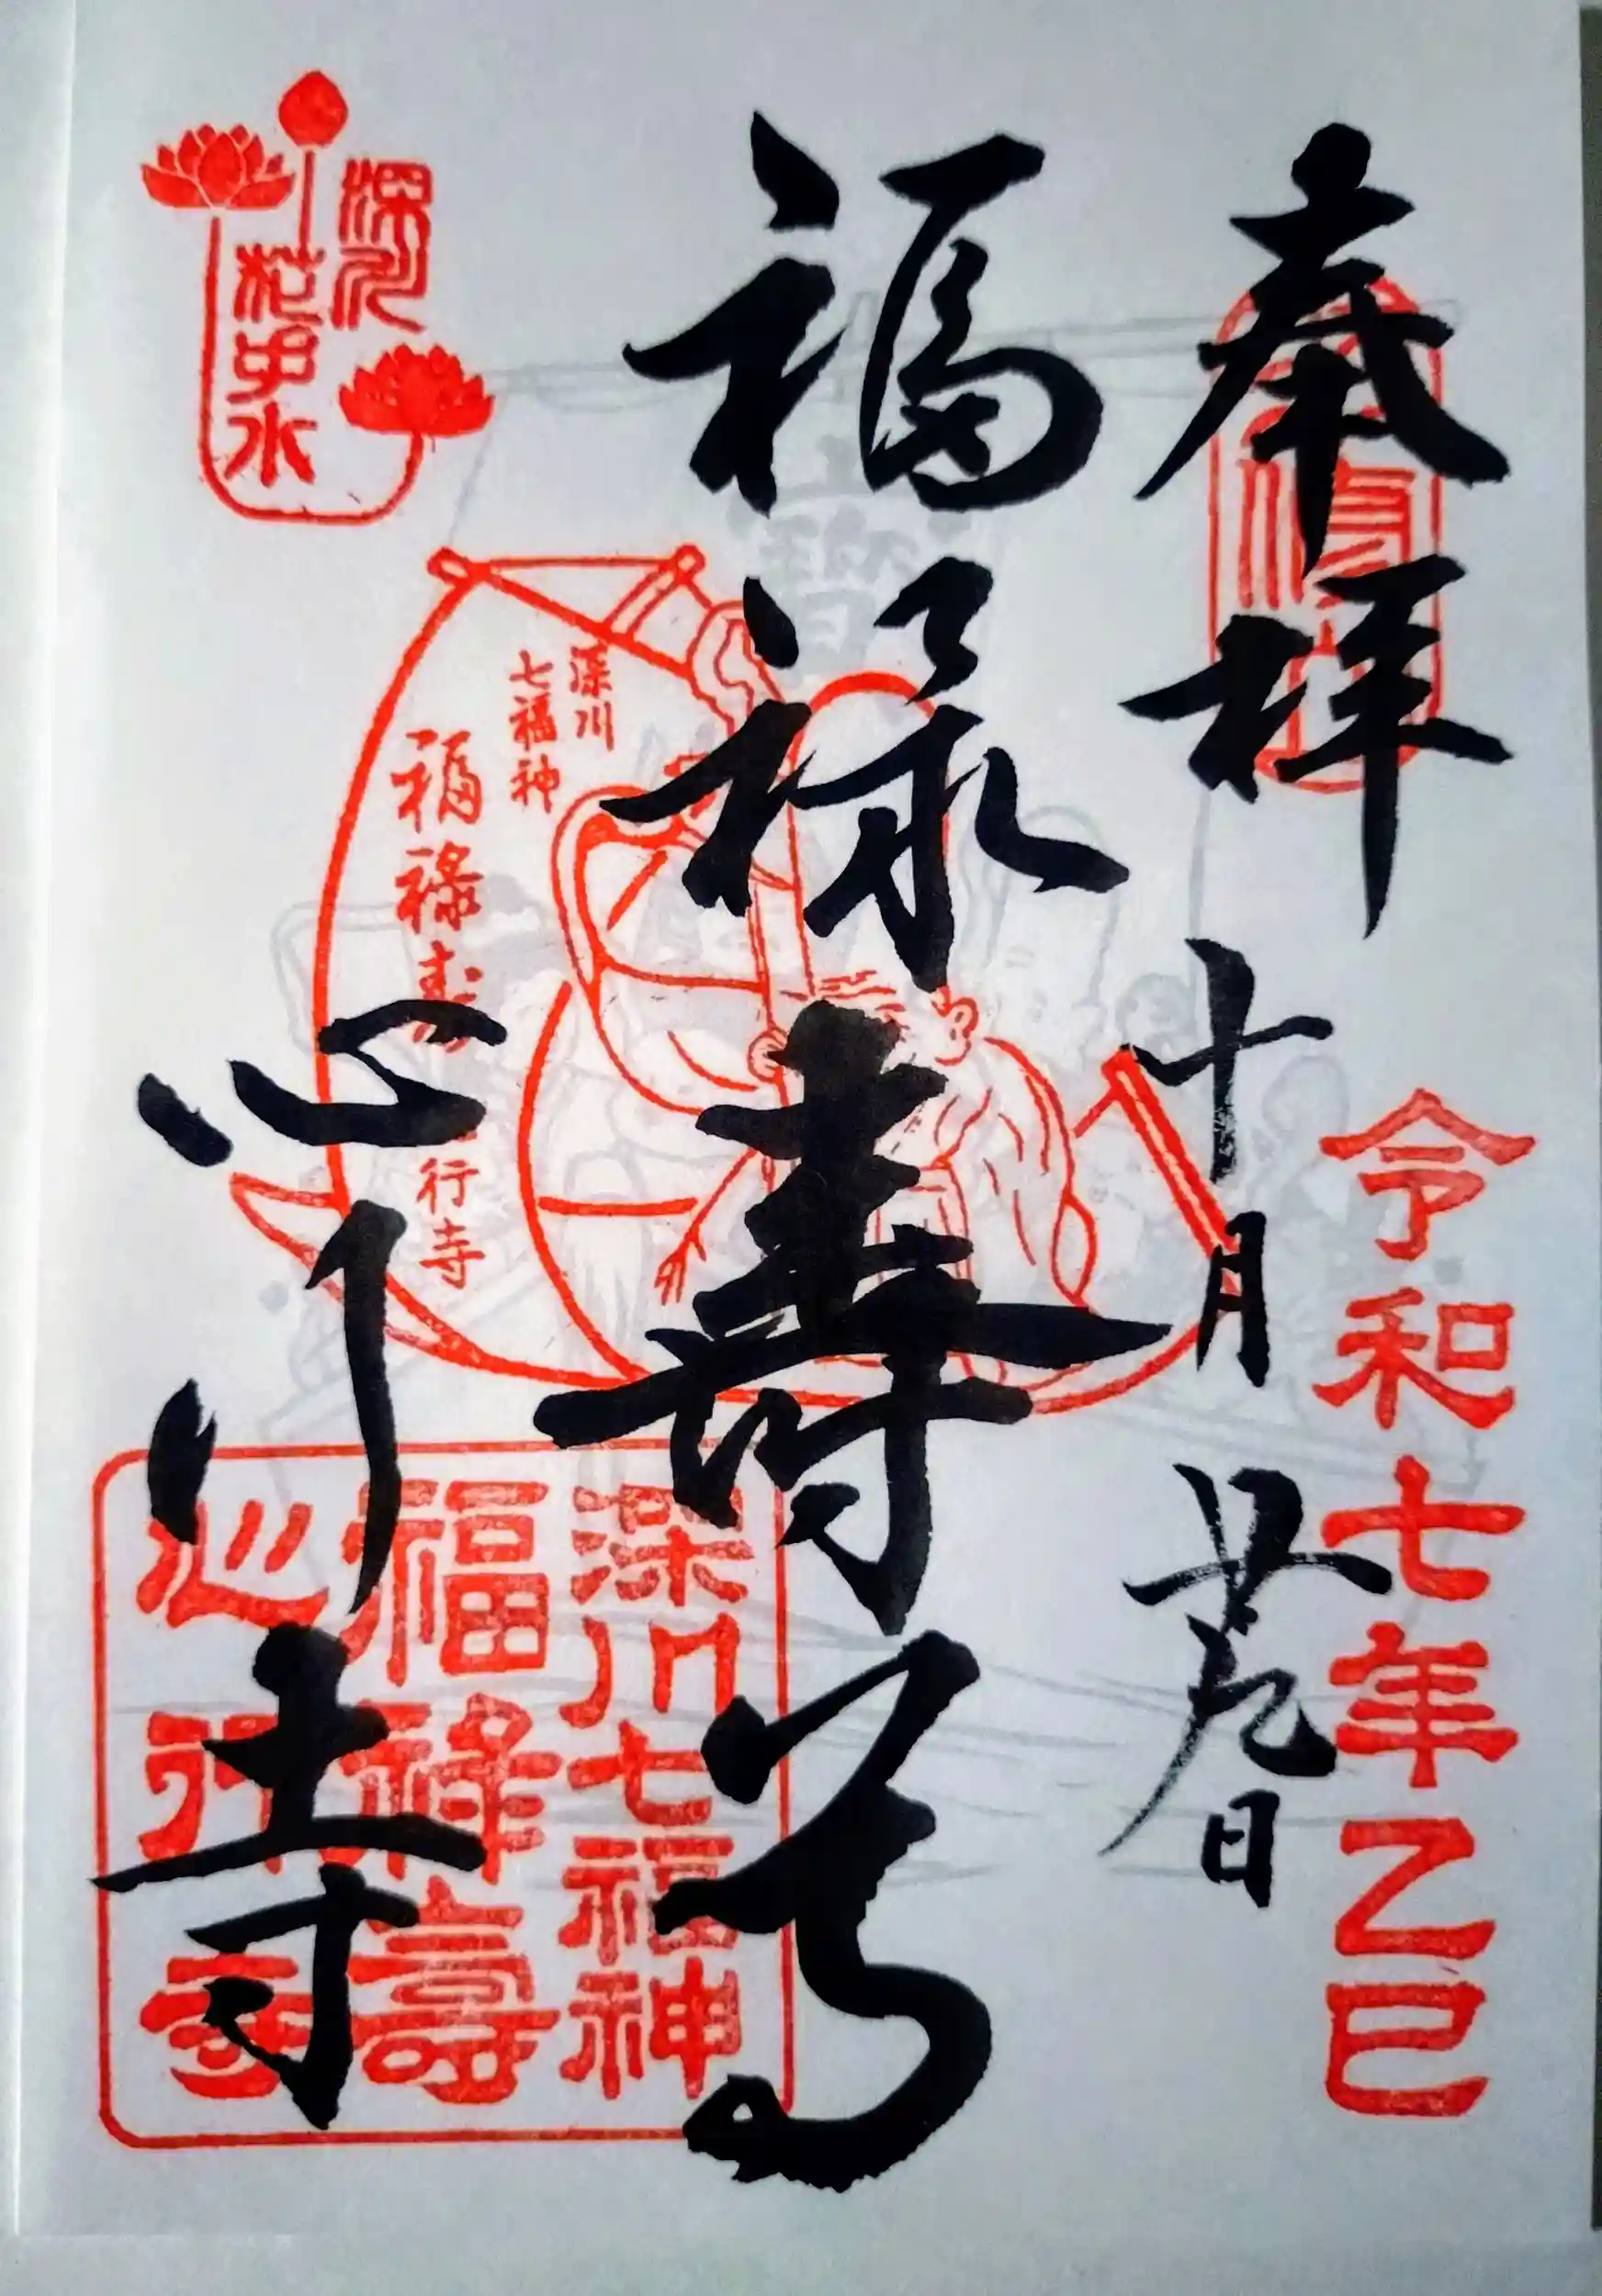 奉拝
十月廿九日
令和七年乙巳
福禄寿尊
心行寺
深川
花中水
深川
七福神
福祿寿
行寺
深川七福神
福祿壽
心行寺
寶